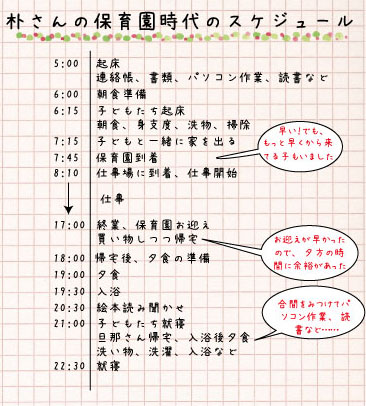 朴さんの保育園時代のスケジュール
5:00 起床
連絡帳、書類、パソコン作業、読書など
6:00 朝食準備
6:15 子どもたち起床
朝食、身支度、洗物、掃除
7:15 子どもと一緒に家を出る
7:45 保育園到着
8:10 仕事場に到着、仕事開始
早い!でも、
もっと早くから来
てる子もいました
仕事
17:00 終業、保育園お迎え
買い物しつつ帰宅
18:00 帰宅後、夕食の準備
19:00 夕食
19:30 入浴
お迎えが早かった
ので、夕方の時
間に余裕があった
20:30 絵本読み聞かせ
21:00 子どもたち就寝
旦那さん帰宅、入浴後夕食
洗い物、洗濯、入浴など
22:30 就寝
合間をみつけてパ
ソコン作業、読
書など……